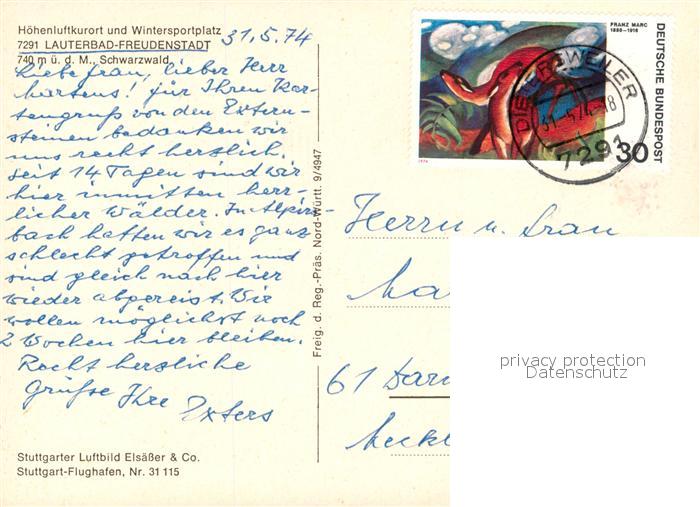 Höhenluftkurort und Wintersportplatz
7291 LAUTERBAD-FREUDENSTADT
740 m ü. d. M., Schwarzwald
31.5.74
Liebe Frau, lieber Herr
Martens! Für Ihren Kar-
tengruß von den Extern-
steinen bedanken wir
uns recht herzlich.
Seit 14 Tagen sind wir
hier inmitten herr-
licher Wälder. In Alpirs-
bach hatten wir es ganz
schlecht getroffen und
sind gleich nach hier
wieder abgereist. Wir
wollen möglichst noch
2 Wochen hier bleiben.
Recht herzliche
Grüße Ihre Exters
Stuttgarter Luftbild Elsäßer & Co.
Stuttgart-Flughafen, Nr. 31 115
Freig. d. Reg.-Präs. Nord-Württ. 9/4947
FRANZ MARC
1880-1916
DEUTSCHE BUNDESPOST
30
1974
DIETERSWEILER
31.5.74-18
7291
Herrn u. Frau
Ma
61 Darm
Meckl
privacy protection
Datenschutz